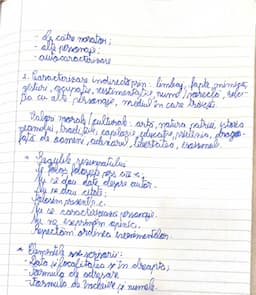 - de către narator;
- alte personaje;
- autocaracterizare
2. Caracterizare indirectă prin: limbaj, fapte, mimică,
gesturi, ocupație, vestimentație, nume / poreclă, rela-
ția cu alte personaje, mediul în care trăiește.
Valori morale / culturale: arta, natura, patria, istoria
neamului, tradiție, copilărie, educație, prietenia, dragos-
tea de oameni, adevărul, libertatea,
* Regulile rezumatului
Se
Nu se dau date despre autor.
Nu se dau citate;
Folosim
Nu se caracterizează personaje.
Nu ne exprimăm
Respectăm ordinea evenimentelor.
* Elementele scrisorii:
- Data și localitatea în dreapta;
- Formula de adresare
- Formula de încheiere și numele.